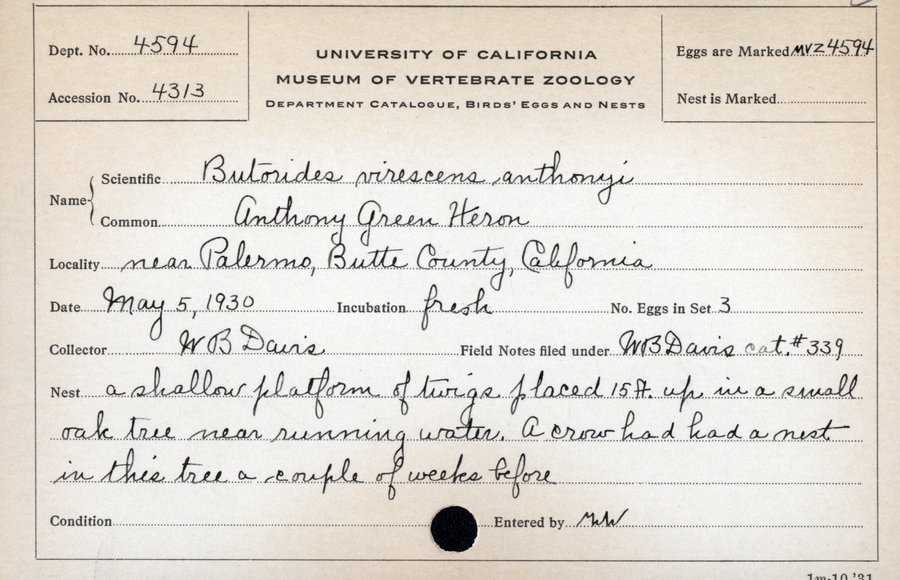 Dept. No. 4594
Accession No. 4313
UNIVERSITY OF CALIFORNIA
MUSEUM OF VERTEBRATE ZOOLOGY
DEPARTMENT CATALOGUE, BIRDS' EGGS AND NESTS
Eggs are Marked MVZ 4594
Nest is Marked
Name
Scientific Butorides virescens anthonyi
Common Anthony Green Heron
Locality near Palermo, Butte County, California
Date May 5, 1930 Incubation fresh No. Eggs in Set 3
Collector W B Davis Field Notes filed under WB Davis cat. # 339
Nest a shallow platform of twigs placed 15 ft. up in a small
oak tree near running water. A crow had had a nest
in this tree a couple of weeks before
Condition Entered by
1m-10.'31